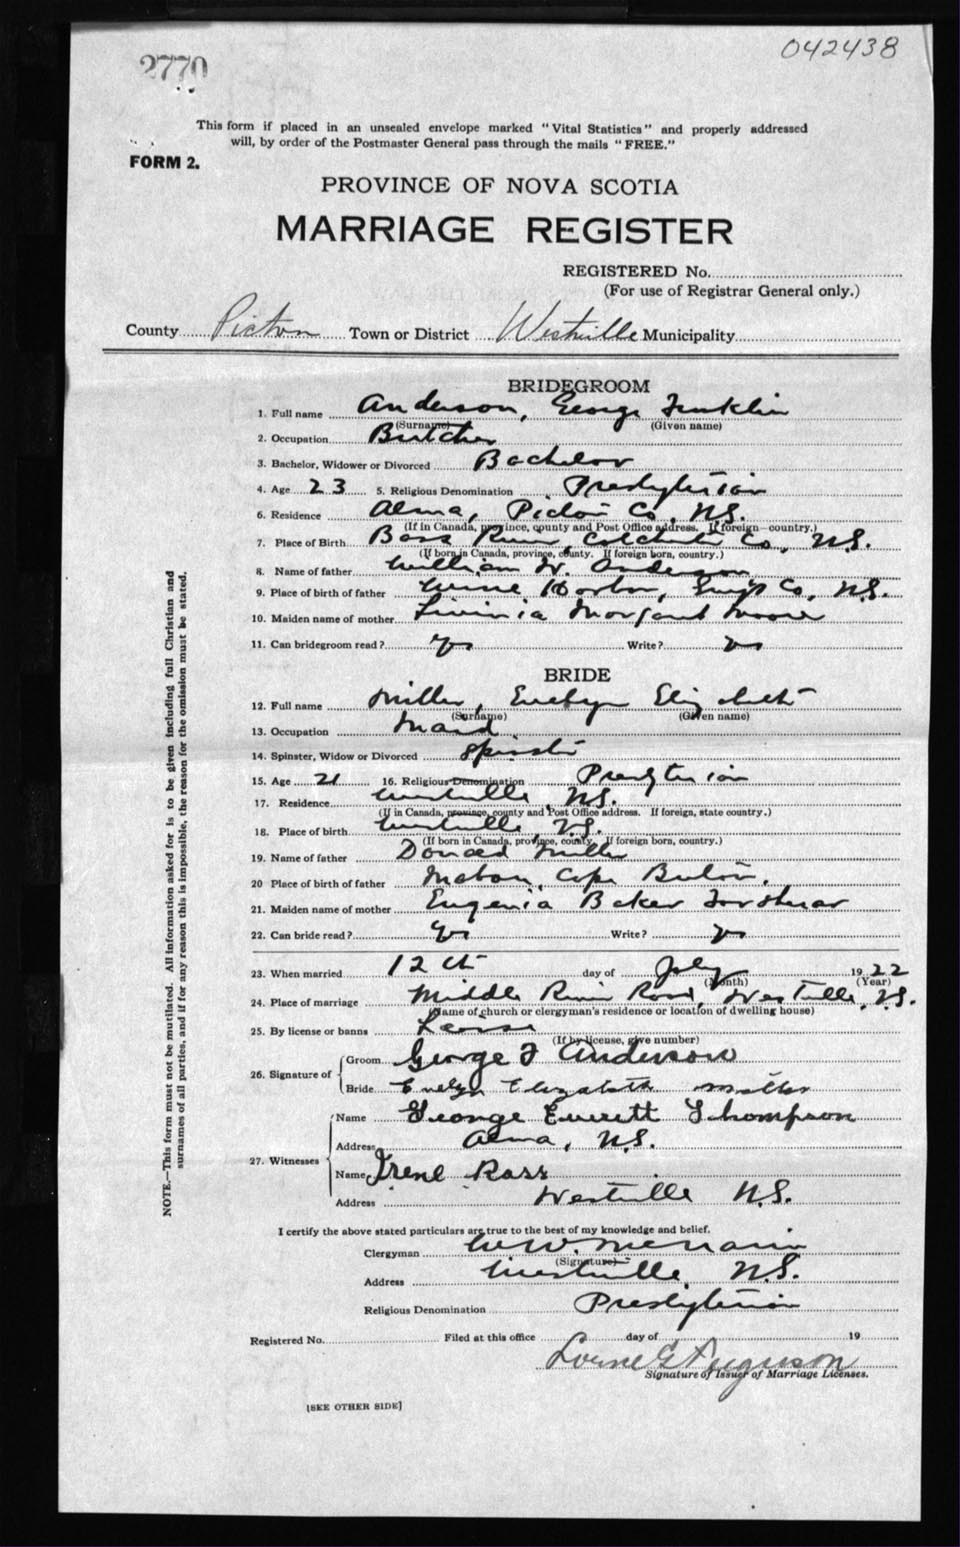 2770
042438
This form if placed in an unsealed envelope marked "Vital Statistics" and properly addressed
will, by order of the Postmaster General pass through the mails "FREE."
FORM 2.
PROVINCE OF NOVA SCOTIA
MARRIAGE REGISTER
REGISTERED No.
(For use of Registrar General only.)
County Pictou Town or District Westville Municipality
BRIDEGROOM
1. Full name Anderson, George Franklin
(Surname) (Given name)
2. Occupation Butcher
3. Bachelor, Widower or Divorced Bachelor
4. Age 23 5. Religious Denomination Presbyterian
6. Residence Alma, Pictou Co, N.S.
(If in Canada, province, county and Post Office address. If foreign country.)
7. Place of Birth Bass River, Colchester Co, N.S.
(If born in Canada, province, county. If foreign born, country.)
8. Name of father William W. Anderson
9. Place of birth of father Wine Harbor, Guy's Co, N.S.
10. Maiden name of mother Margaret Moore
11. Can bridegroom read? Yes Write? Yes
BRIDE
12. Full name Miller, Evelyn Elizabeth
(Surname) (Given name)
13. Occupation Maid
14. Spinster, Widow or Divorced Spinster
15. Age 21 16. Religious Denomination Presbyterian
17. Residence Westville N.S.
(If in Canada, province, county and Post Office address. If foreign, state country.)
18. Place of birth Westville N.S.
(If born in Canada, province, county. If foreign born, country.)
19. Name of father Donald Miller
20 Place of birth of father Mabou, Cape Breton,
21. Maiden name of mother Eugenia Baker
22. Can bride read? Yes Write? Yes
23. When married 12th day of July 1922
(Month) (Year)
24. Place of marriage Middle River Road, Westville, N.S.
(Name of church or clergyman's residence or location of dwelling house)
25. By license or banns License
(If by license, give number)
26. Signature of Groom George F Anderson
Bride Evelyn Elizabeth Miller
27. Witnesses Name George Everett Thompson
Address Alma, N.S.
Name Irene Ross
Address Westville N.S.
I certify the above stated particulars are true to the best of my knowledge and belief.
Clergyman W W.
(Signature)
Address Westville, N.S.
Religious Denomination Presbyterian
Registered No. Filed at this office day of 19
Lorne G Ferguson
Signature of Issuer of Marriage Licenses.
[SEE OTHER SIDE]
NOTE.—This form must not be mutilated. All information asked for is to be given including full Christian and
surnames of all parties, and if for any reason this is impossible, the reason for the omission must be stated.